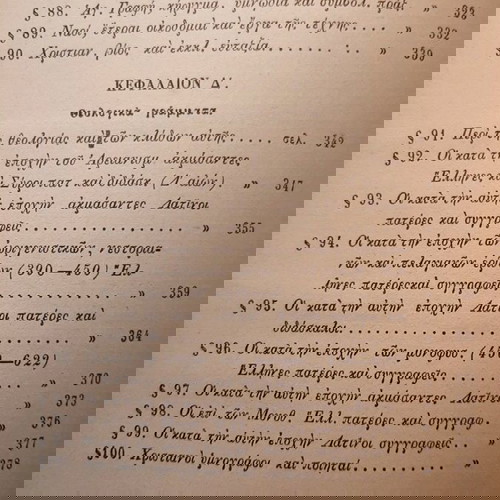 § 88. Αγ. Γραφή κήρυγμα, ὑμνῳδία καὶ συμβολ. πρᾶξ „ 324
§ 89. Ναοὶ ἕτεραι οἰκοδομαὶ καὶ ἔργα τῆς τέχνης. „ 332
§ 90. Χριστιαν. βίος καὶ ἐκκλ. εὐταξία. „ 339
ΚΕΦΑΛΑΙΟΝ Δ΄.
Θεολογικὰ γράμματα
§ 91. Περὶ τῆς θεολογίας καὶ τῶν κλάδων αὐτῆς. σελ. 342
§ 92. Οἱ κατὰ τὴν ἐποχὴν τοῦ Ἀρειανισμ. ἀκμάσαντες
Ἕλληνες καὶ Σύροι πατ. καὶ διδάσκ. (Δ΄ αἰών) „ 347
§ 93. Οἱ κατὰ τὴν αὐτὴν ἐποχὴν ἀκμάσαντες Λατῖνοι
πατέρες καὶ συγγραφεῖς. „ 355
§ 94. Οἱ κατὰ τὴν ἐποχὴν τῶν ὠριγενιστικῶν, νεστορια-
νῶν καὶ πελαγιανῶν ἐρίδων (390—450) Ἕλ-
ληνες πατέρες καὶ συγγραφεῖς „ 359
§ 95. Οἱ κατὰ τὴν αὐτὴν ἐποχὴν Λατῖνοι πατέρες καὶ
διδάσκαλοι „ 364
§ 96. Οἱ κατὰ τὴν ἐποχὴν τῶν μονοφυσ. (450—622)
Ἕλληνες πατέρες καὶ συγγραφεῖς „ 370
§ 97. Οἱ κατὰ τὴν αὐτὴν ἐποχὴν ἀκμάσαντες Λατῖνοι „ 373
§ 98. Οἱ ἐπὶ τῶν Μονοθ. Ἑλλ. πατέρες καὶ συγγραφ. „ 376
§ 99. Οἱ κατὰ τὴν αὐτὴν ἐποχὴν Λατῖνοι συγγραφεῖς „ 377
§ 100. Χριστιανοὶ ὑμνογράφοι καὶ ποιηταί „ 378